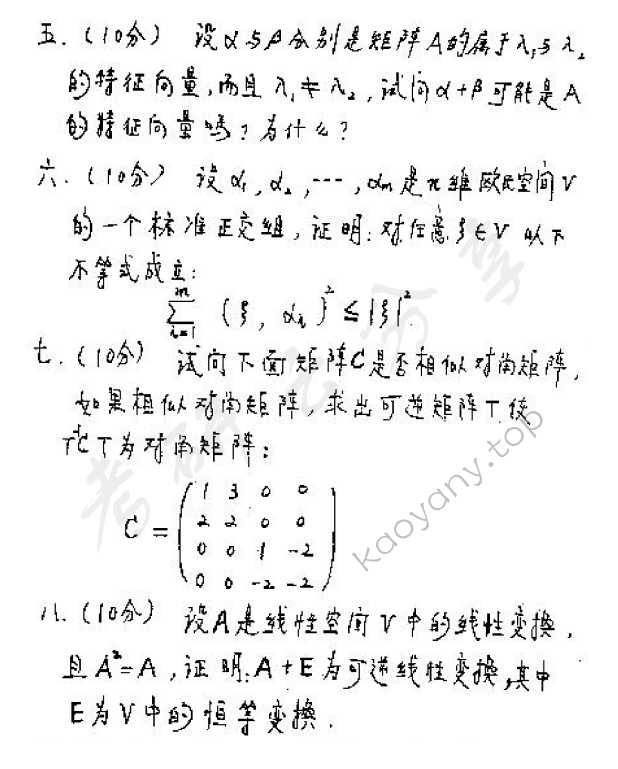 五.(10分) 设α与β分别是矩阵A的属于λ₁与λ₂
的特征向量,而且λ₁≠λ₂,试问α+β可能是A
的特征向量吗?为什么?
六.(10分) 设α₁,α₂,…,αm是n维欧氏空间V
的一个标准正交组,证明:对任意ξ∈V 以下
不等式成立:
∑_{i=1}^{m} (ξ, αi)² ≤ |ξ|².
七.(10分) 试问下面矩阵C是否相似对角矩阵,
如果相似对角矩阵,求出可逆矩阵T使
T⁻¹CT为对角矩阵:
C =
1 3 0 0
2 2 0 0
0 0 1 -2
0 0 -2 -2
八.(10分) 设A是线性空间V中的线性变换,
且A²=A,证明:A+E为可逆线性变换,其中
E为V中的恒等变换.
考研云分享
kaoyany.top